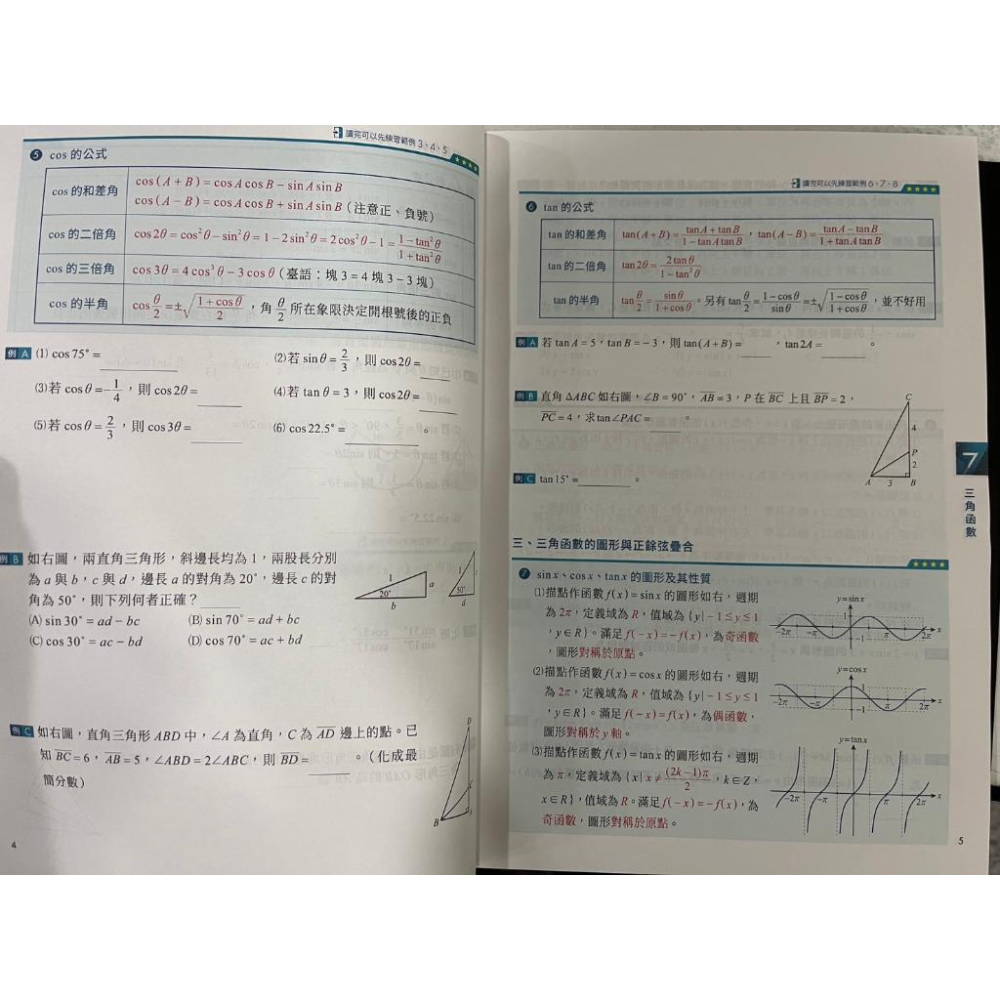 讀完可以先練習範例 3、4、5
5 cos 的公式
cos 的和差角
cos (A + B) = cos A cos B − sin A sin B
cos (A − B) = cos A cos B + sin A sin B (注意正、負號)
cos 的二倍角
cos 2θ = cos²θ − sin²θ = 1 − 2 sin²θ = 2 cos²θ − 1 = (1 − tan²θ)/(1 + tan²θ)
cos 的三倍角
cos 3θ = 4 cos³θ − 3 cos θ (臺語:塊 3 = 4 塊 3 − 3 塊)
cos 的半角
cos θ/2 = ±√((1 + cos θ)/2),角 θ/2 所在象限決定開根號後的正負
例 A (1) cos 75° = ______
(2) 若 sin θ = 2/3,則 cos 2θ = ______
(3) 若 cos θ = −1/4,則 cos 2θ = ______
(4) 若 tan θ = 3,則 cos 2θ = ______
(5) 若 cos θ = 2/3,則 cos 3θ = ______
(6) cos 22.5° = ______。
例 B 如右圖,兩直角三角形,斜邊長均為 1,兩股長分別
為 a 與 b,c 與 d,邊長 a 的對角為 20°,邊長 c 的對
角為 50°,則下列何者正確?
(A) sin 30° = ad − bc
(B) sin 70° = ad + bc
(C) cos 30° = ac − bd
(D) cos 70° = ac + bd
1
20°
a
b
1
50°
d
例 C 如右圖,直角三角形 ABD 中,∠A 為直角,C 為 AD 邊上的點。已
知 BC = 6,AB = 5,∠ABD = 2∠ABC,則 BD = ______。(化成最
簡分數)
D
B
4
讀完可以先練習範例 6、7、8
6 tan 的公式
tan 的和差角
tan (A + B) = (tan A + tan B)/(1 − tan A tan B),tan (A − B) = (tan A − tan B)/(1 + tan A tan B)
tan 的二倍角
tan 2θ = 2 tan θ/(1 − tan²θ)
tan 的半角
tan θ/2 = sin θ/(1 + cos θ)。另有 tan θ/2 = (1 − cos θ)/sin θ = ±√((1 − cos θ)/(1 + cos θ)),並不好用
例 A 若 tan A = 5,tan B = −3,則 tan (A + B) = ______,tan 2A = ______。
例 B 直角 △ABC 如右圖,∠B = 90°,AB = 3,P 在 BC 上且 BP = 2,
PC = 4,求 tan ∠PAC = ______。
C
4
P
2
A
3
B
例 C tan 15° = ______。
7
三角函數
三、三角函數的圖形與正餘弦疊合
7 sin x、cos x、tan x 的圖形及其性質
(1) 描點作函數 f(x) = sin x 的圖形如右,週期
為 2π,定義域為 R,值域為 {y | −1 ≤ y ≤ 1
,y ∈ R}。滿足 f(−x) = −f(x),為奇函數
,圖形對稱於原點。
y = sin x
−2π −π 1 −1 π 2π x
(2) 描點作函數 f(x) = cos x 的圖形如右,週期
為 2π,定義域為 R,值域為 {y | −1 ≤ y ≤ 1
,y ∈ R}。滿足 f(−x) = f(x),為偶函數,
圖形對稱於 y 軸。
y = cos x
−2π −π 1 −1 π 2π x
(3) 描點作函數 f(x) = tan x 的圖形如右,週期
為 π,定義域為 {x | x ≠ (2k − 1)π/2,k ∈ Z,
x ∈ R},值域為 R。滿足 f(−x) = −f(x),為
奇函數,圖形對稱於原點。
y = tan x
−2π −π π 2π x
5